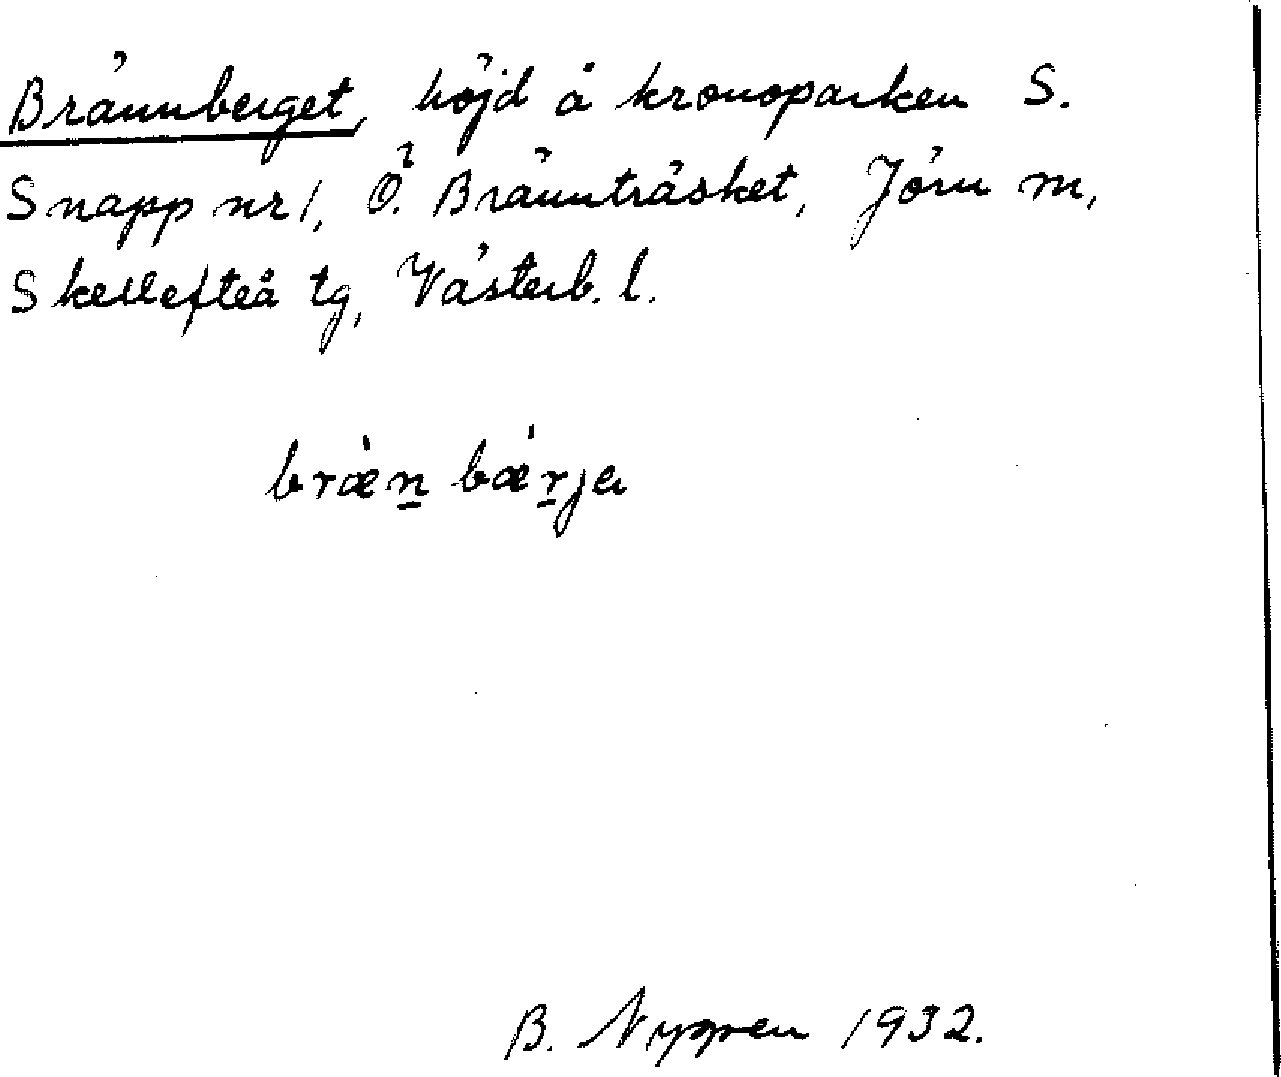 Brännberget, höjd å kronoparken S.
Snapp nr 1, Ö. Brännträsket, Jörn sn,
Skellefteå tg, Västerb. l.
bræ̀n̲ bǽr̲ja
B. Nygren 1932.